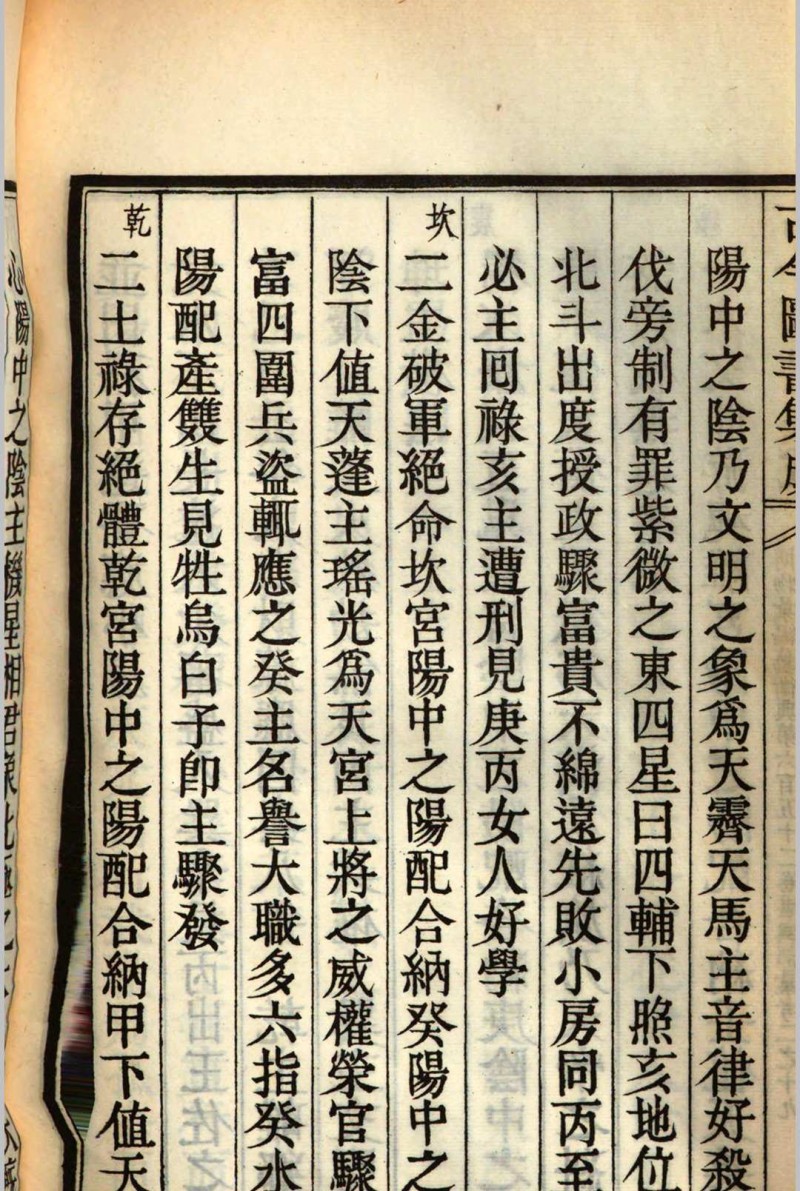 古今圖書集成
陽中之陰乃文明之象爲天霽天馬主音律好殺
伐旁制有罪紫微之東四星曰四輔下照亥地位
北斗出度授政驟富貴不綿遠先敗小房同丙至
必主囘祿亥主遭刑見庚丙女人好學
坎
二金破軍絕命坎宮陽中之陽配合納癸陽中之
陰下值天蓬主瑤光爲天宮上將之威權榮官驟
富四圍兵盜輒應之癸主名譽大職多六指癸水
陽配產雙生見牲烏白子卽主驟發
乾
二土祿存絕體乾宮陽中之陽配合納甲下值天
心陽中之陰主機星相君像北極之